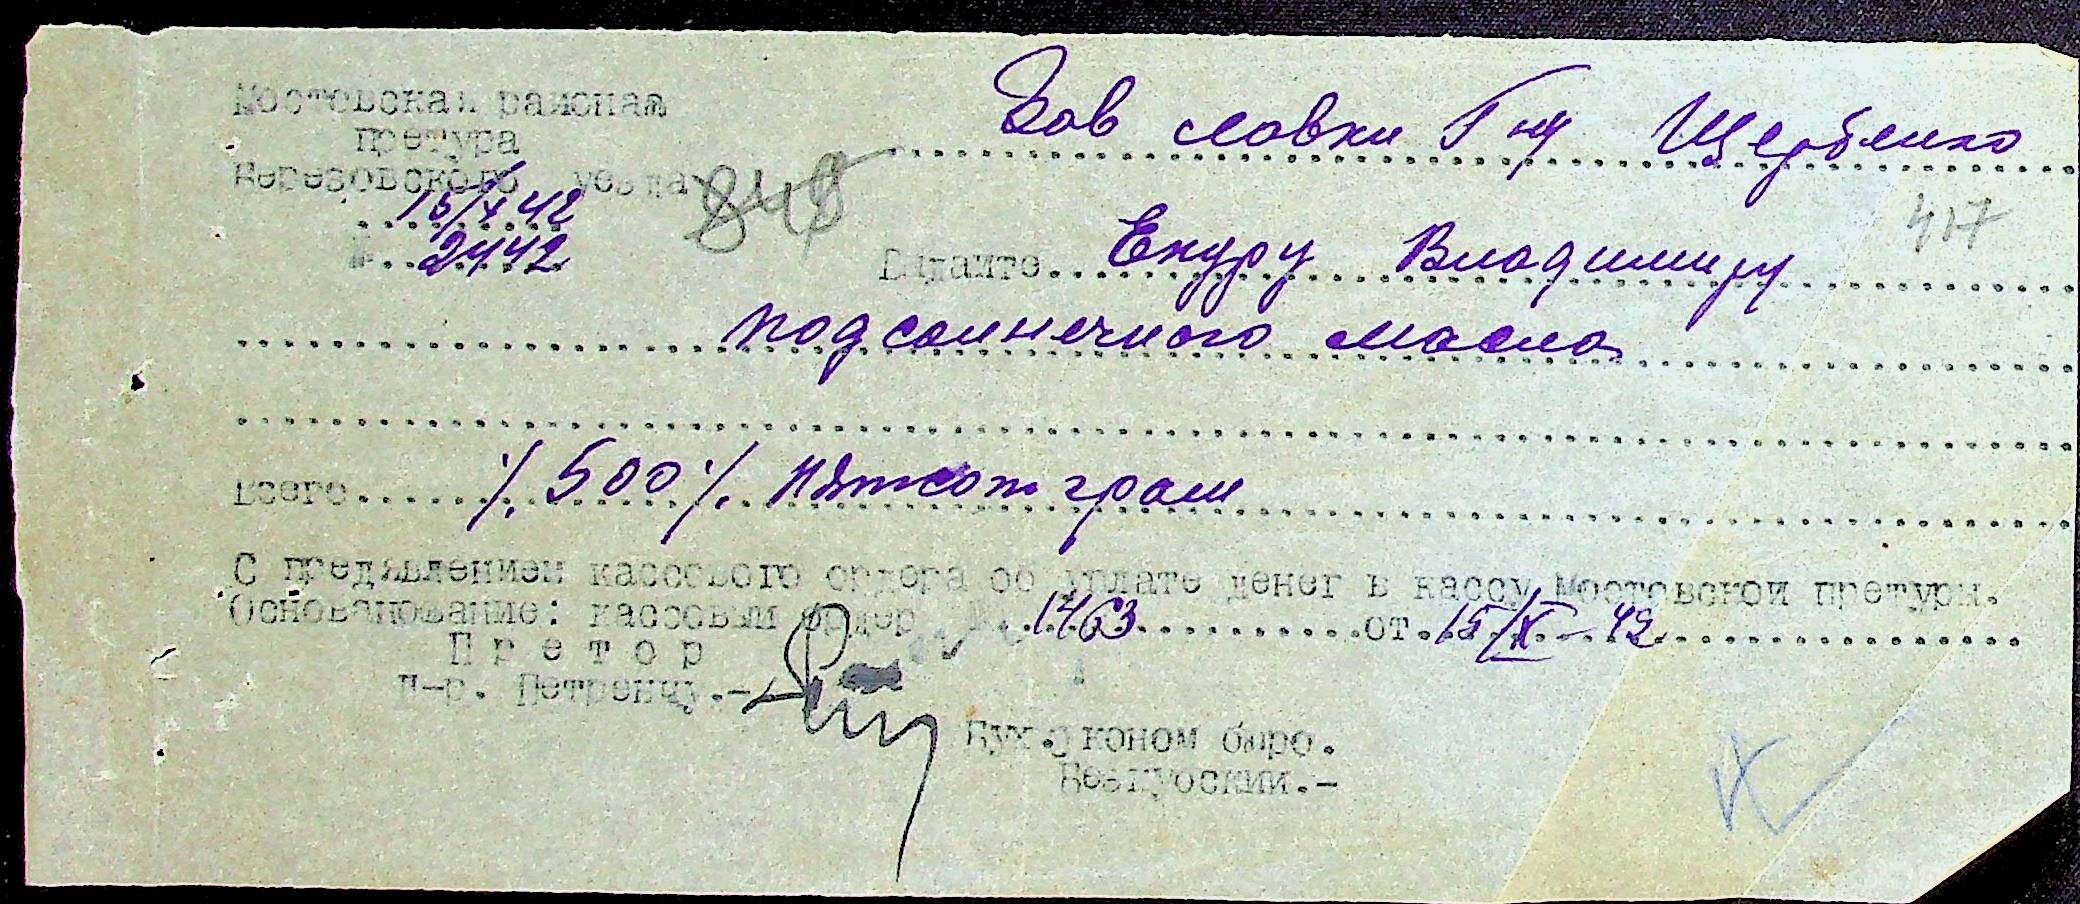 Мостовская районая
претура
Березовского уезда
848
Зав лавки Г-ну Щербенко
15/X 42
№ 2442
417
Выдайте Енуру Владимиру
подсолнечного масла
Всего /.500./. пятсот грам
С предявлением кассового ордера об уплате денег в кассу Мостовской претуры.
Основанование: кассовый ордер № 1463 от 15/X-42
Претор
Д-р. Петренцу.-
Бух.эконом бюро.